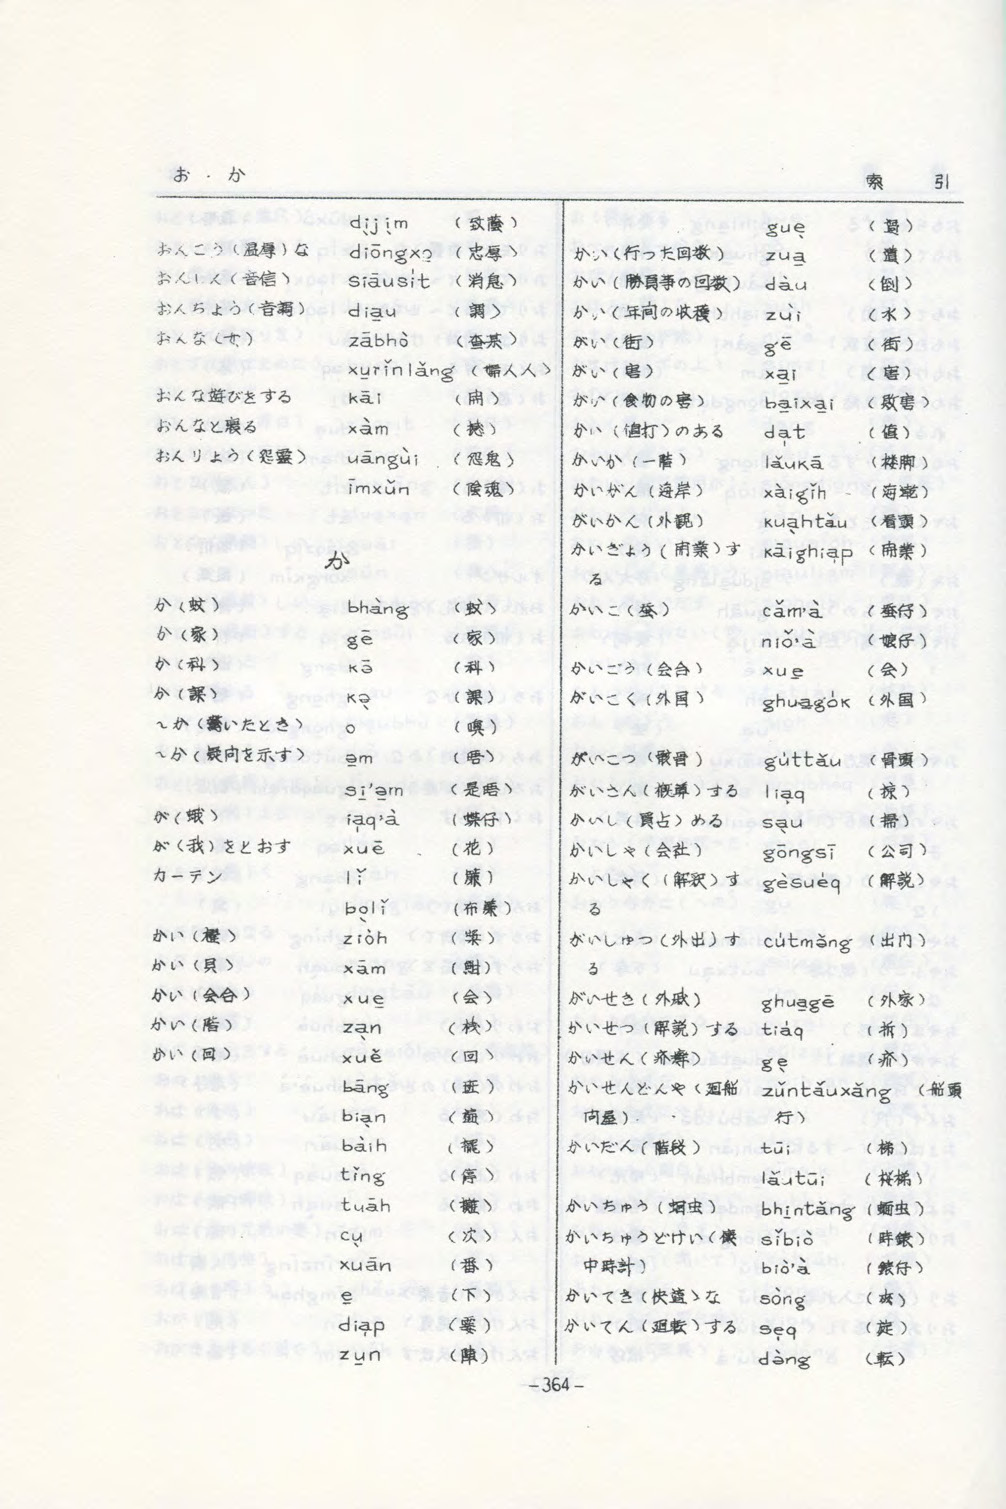 お・か
索引
dịjịm (致蔭)
おんこう(温厚)な diōngxọ (忠厚)
おんしん(音信) siāusit (消息)
おんちょう(音調) diạu (調)
おんな(女) zābhò (查某)
xụrinlǎng (婦人人)
おんな遊びをする kāi (開)
おんなと寝る xàm
おんりょう(怨靈) uāngùi (怨鬼)
īmxǔn (陰魂)
か
か(蚊) bhàng (蚊)
か(家) gē (家)
か(科) kō (科)
か(課) kọ (課)
〜か(驚いたとき) o
〜か(疑問を示す) ạm (唔)
sị'ạm (是唔)
が(蛾) iạq'à (蝶仔)
が(我)をとおす xuē (花)
カーテン lǐ (簾)
bọlǐ (布簾)
かい(櫂) ziòh (槳)
かい(貝) xām (蚶)
かい(会合) xuẹ (会)
かい(階) zan (栈)
かい(回) xuě (回)
bāng (班)
biạn
bàih (擺)
tǐng (停)
tuạ̄h
cụ (次)
xuān (番)
ẹ (下)
diạp
zụn (陣)
guẹ (過)
かい(行った回数) zuạ
かい(勝負事の回数) dàu (倒)
かい(年間の収穫) zùi (水)
がい(街) gē (街)
がい(害) xại (害)
がい(食物の害) bạixại (敗害)
かい(値打)のある dạt (値)
かいか(一階) lǎukā (楼脚)
かいがん(海岸) xàigǐh
がいかん(外観) kuạhtǎu (看頭)
かいぎょう(開業)す kāighiạp (開業)
る
かいこ(蚕) cǎm'à (蚕仔)
niǒ'à (娘仔)
かいごう(会合) xuẹ (会)
がいこく(外国) ghuạgòk (外国)
がいこつ(骸骨) gùttǎu (骨頭)
がいさん(概算)する liạq (掠)
かいし(買占)める sạu (掃)
かいしゃ(会社) gōngsī (公司)
かいしゃく(解釈)す gèsuèq (解説)
る
がいしゅつ(外出)す cùtmǎng (出門)
る
がいせき(外戚) ghuạgē (外家)
かいせつ(解説)する tiàq (拆)
かいせん(疥癬) gẹ (疥)
かいせんどんや(廻船 zǔntǎuxǎng (船頭
問屋) 行)
かいだん(階段) tūi (梯)
lǎutūi (楼梯)
かいちゅう(蛔虫) bhịntǎng
かいちゅうどけい(懐 sǐbiò (時錶)
中時計) biò'à (錶仔)
かいてき(快適)な sòng
かいてん(廻転)する sẹq
dàng (転)
-364-